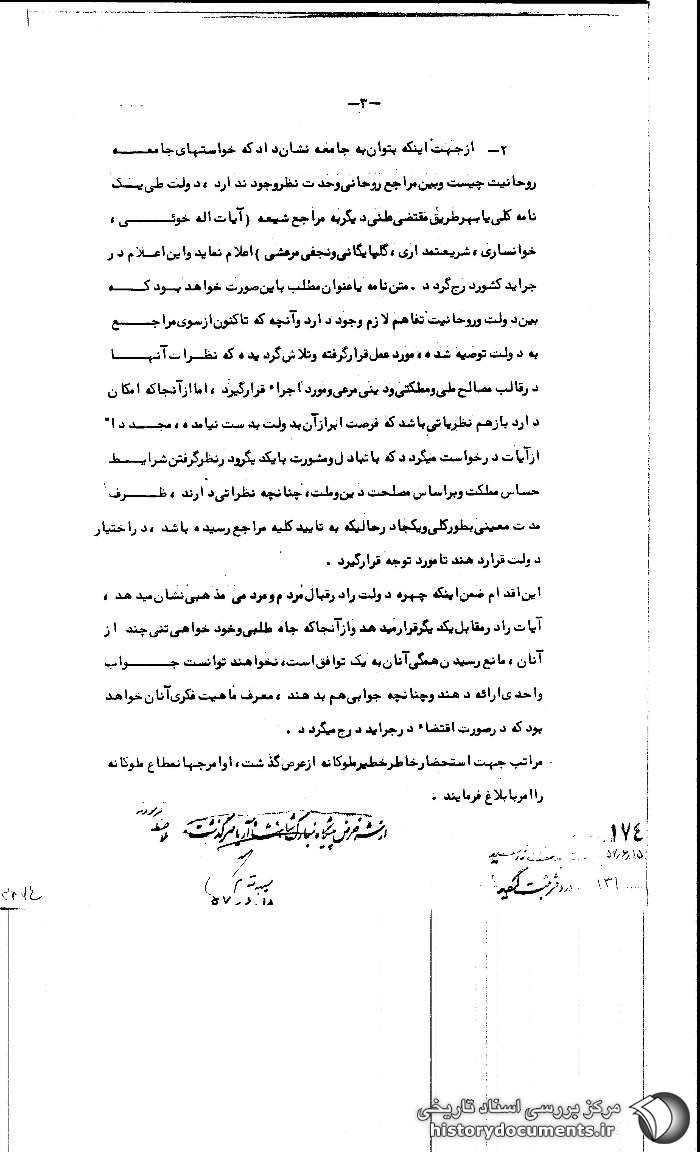 -۳-
۲- از جهت اینکه بتوان به جامعه نشان داد که خواستهای جامعه
روحانیت چیست و بین مراجع روحانی وحدت نظر وجود ندارد ، دولت طی یک
نامه کلی یا بهر طریق مقتضی طی دیگر به مراجع شیعه (آیات اله خوئی ،
خوانساری ، شریعتمداری ، گلپایگانی و نجفی مرعشی) اعلام نماید و این اعلام در
جراید کشور درج گردد . متن نامه یا عنوان مطلب باین صورت خواهد بود که
بین دولت و روحانیت تفاهم لازم وجود دارد و آنچه که تاکنون از سوی مراجع
به دولت توصیه شده ، مورد عمل قرار گرفته و تلاش گردیده که نظرات آنها
در قالب مصالح ملی و مملکتی و دینی مرعی و مورد اجراء قرار گیرد ، اما از آنجا که امکان
دارد باز هم نظریاتی باشد که فرصت ابراز آن بدولت بدست نیامده ، مجددا"
از آیات درخواست میگردد که با تبادل و مشورت با یکدیگر و در نظر گرفتن شرایط
حساس مملکت و بر اساس مصلحت دین و ملت ، چنانچه نظراتی دارند ، ظرف
مدت معینی بطور کلی و یکجا در حالیکه به تایید کلیه مراجع رسیده باشد ، در اختیار
دولت قرار دهند تا مورد توجه قرار گیرد .
این اقدام ضمن اینکه چهره دولت را در قبال مردم و مردمی مذهبی نشان میدهد ،
آیات را در مقابل یکدیگر قرار میدهد و از آنجا که جاه طلبی و خود خواهی تنی چند از
آنان ، مانع رسیدن همگی آنان به یک توافق است ، نخواهند توانست جواب
واحدی ارائه دهند و چنانچه جوابی هم بدهند ، معرف ماهیت فکری آنان خواهد
بود که در صورت اقتضاء در جراید درج میگردد .
مراتب جهت استحضار خاطر خطیر ملوکانه از عرض گذشت ، اوامر جهانمطاع ملوکانه
را امر با بلاغ فرمایند .
از شرف عرض پیشگاه مبارک شاهنشاه آریامهر گذشت
ملاحظه فرمودند
۱۷٤
۵۷٫۶٫۱۵
۱۳۱ در دفتر ثبت گردید
مرکز بررسی اسناد تاریخی
historydocuments.ir